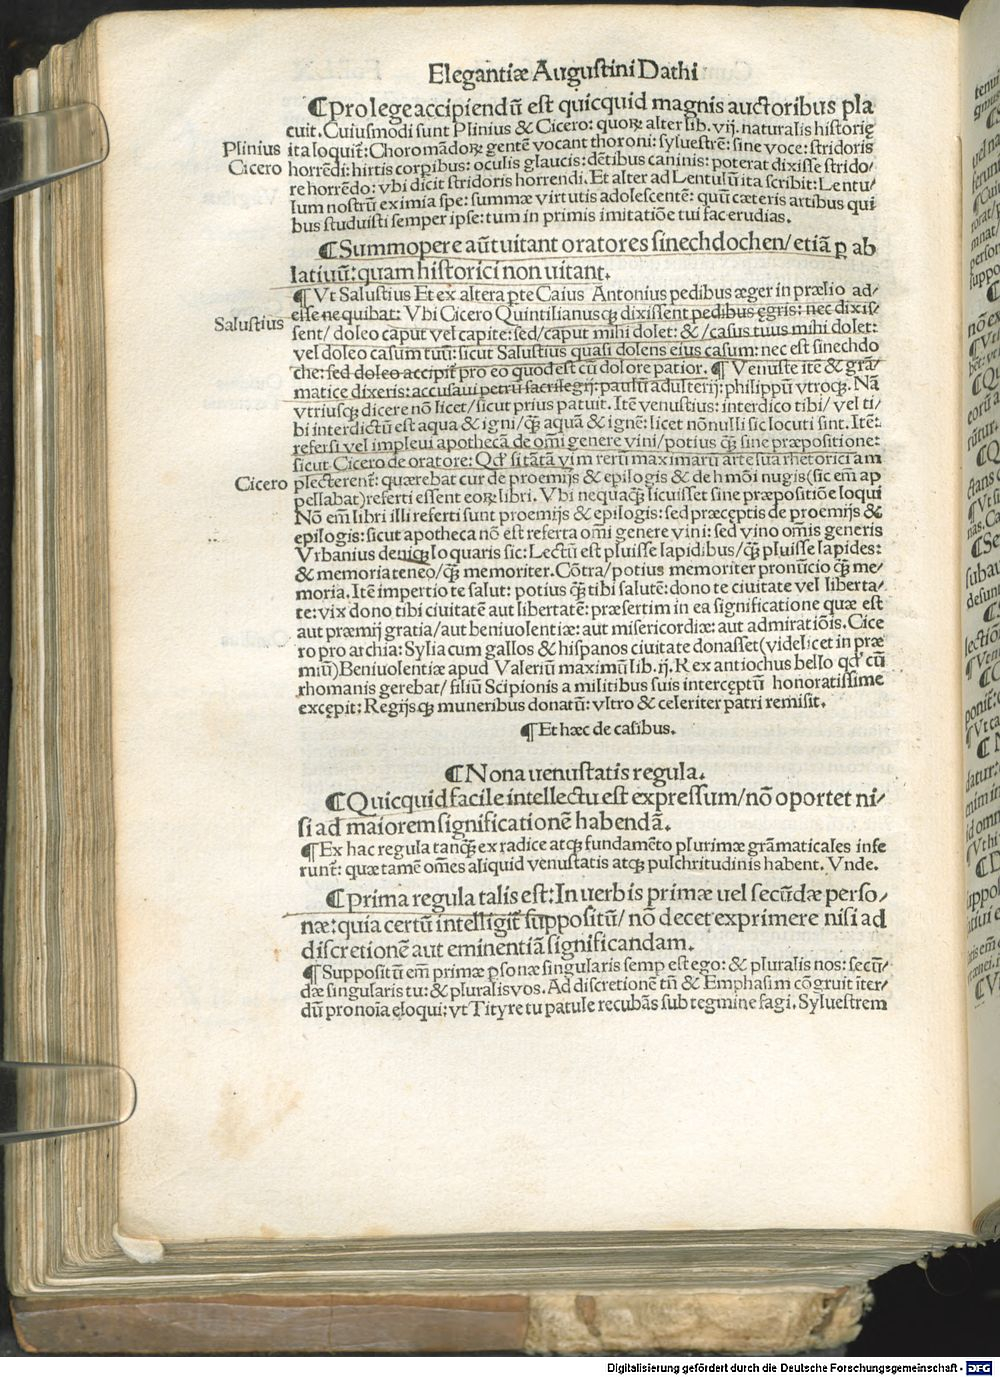 Elegantiæ Augustini Dathi
¶Pro lege accipiendū est quicquid magnis auctoribus pla
cuit. Cuiusmodi sunt Plinius & Cicero: quoꝝ alter lib. vij. naturalis historię
Plinius
ita loquit̄: Choromādoꝝ gentē vocant thoroni: syluestrē: sine voce: stridoris
Cicero
horrēdi: hirtis corpibus: oculis glaucis: dētibus caninis: poterat dixisse strido/
re horrēdo: vbi dicit stridoris horrendi. Et alter ad Lentulū ita scribit: Lentu/
lum nostrū eximia spe: summæ virtutis adolescentē: quū cæteris artibus qui
bus studuisti semper ipse: tum in primis imitatiōe tui fac erudias.
¶Summopere aūt uitant oratores sinechdochen/ etiā ꝑ ab
latiuū: quam historici non uitant.
¶Vt Salustius Et ex altera ꝑte Caius Antonius pedibus æger in prælio ad/
esse nequibat: Vbi Cicero Quintilianusqꝫ dixissent pedibus ęgris: nec dixis/
Salustius
sent/ doleo caput vel capite: sed/ caput mihi dolet: &/ casus tuus mihi dolet:
vel doleo casum tuū: sicut Salustius quasi dolens eius casum: nec est sinechdo
che: sed doleo accipit̄ pro eo quod est cū dolore patior. ¶Venuste itē & grā/
matice dixeris: accusaui petrū sacrilegij: paulū adulterij: philippū vtroqꝫ. Nā
vtriusqꝫ dicere nō licet/ sicut prius patuit. Itē venustius: interdico tibi/ vel ti/
bi interdictū est aqua & igni/ qꝫ̄ aquā & ignē: licet nōnulli sic locuti sint. Itē:
refersi vel impleui apothecā de omi genere vini/ potius qꝫ̄ sine præpositione:
sicut Cicero de oratore: Qd̛ si tātā vim rerū maximarū arte sua rhetorici am
Cicero
plecterent̄: quærebat cur de proemijs & epilogis & de hmōi nugis (sic em̄ ap
pellabat) referti essent eoꝝ libri. Vbi nequaqꝫ̄ licuisset sine præpositiōe loqui
Nō em̄ libri illi referti sunt proemijs & epilogis: sed præceptis de proemijs &
epilogis: sicut apotheca nō est referta omī genere vini: sed vino omīs generis
Vrbanius deniqꝫ loquaris sic: Lectū est pluisse lapidibus/ qꝫ̄ pluisse lapides:
& memoria teneo/ qꝫ̄ memoriter. Cōtra/ potius memoriter pronūcio qꝫ̄ me/
moria. Itē impertio te salut̄: potius qꝫ̄ tibi salutē: dono te ciuitate vel liberta/
te: vix dono tibi ciuitatē aut libertatē: præsertim in ea significatione quæ est
aut præmij gratia/ aut beniuolentiæ: aut misericordiæ: aut admiratiōis. Cice
ro pro archia: Sylla cum gallos & hispanos ciuitate donasset (videlicet in præ
miū) Beniuolentiæ apud Valeriū maximū lib. ij. Rex antiochus bello qd̛ cū
rhomanis gerebat/ filiū Scipionis a militibus suis interceptū honoratissime
excępit: Regijsqꝫ muneribus donatū: vltro & celeriter patri remisit.
¶Et hæc de casibus.
¶Nona uenustatis regula.
¶Quicquid facile intellectu est expressum/ nō oportet ni/
si ad maiorem significationē habendā.
¶Ex hac regula tanqꝫ̄ ex radice atqꝫ fundamēto plurimæ grāmaticales infe
runt̄: quæ tamē omēs aliquid venustatis atqꝫ pulchritudinis habent. Vnde.
¶Prima regula talis est: In uerbis primæ uel secūdæ perso/
næ: quia certū intelligit̄ suppositū/ nō decet exprimere nisi ad
discretionē aut eminentiā significandam.
¶Suppositū em̄ primæ ꝑsonæ singularis semp est ego: & pluralis nos: secū/
dæ singularis tu: & pluralis vos. Ad discretionē tn̄ & Emphasim cōgruit iter/
dū pronoīa eloqui: vt Tityre tu patule recubās sub tegmine fagi. Syluestrem
Digitalisierung gefördert durch die Deutsche Forschungsgemeinschaft - DFG